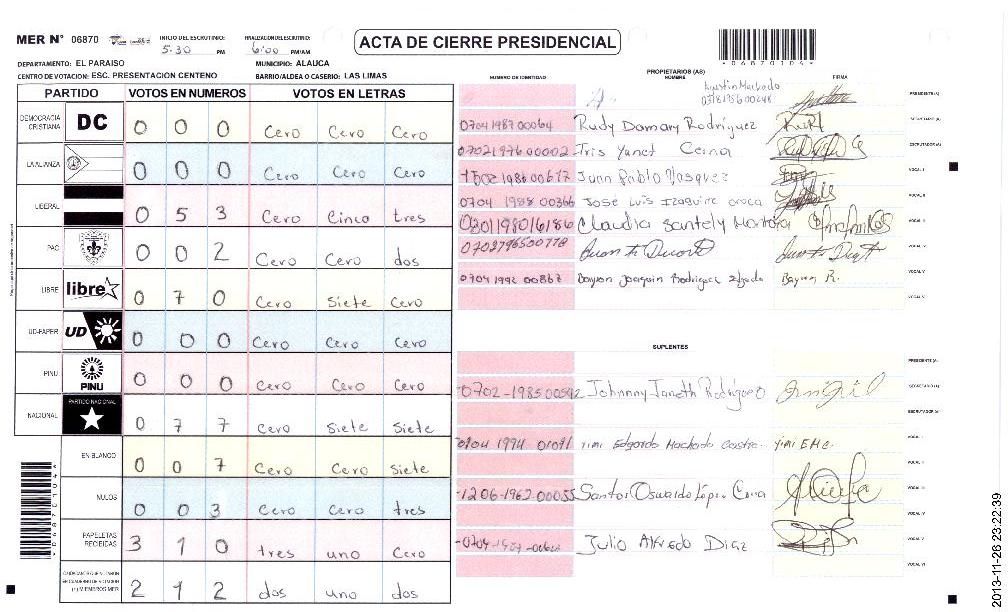 MER N° 06870
INICIO DEL ESCRUTINIO: 5:30 PM
FINALIZACION DEL ESCRUTINIO: 6:00 PM/AM
ACTA DE CIERRE PRESIDENCIAL
06870104
DEPARTAMENTO: EL PARAISO
MUNICIPIO: ALAUCA
CENTRO DE VOTACION: ESC. PRESENTACION CENTENO
BARRIO/ALDEA O CASERIO: LAS LIMAS
PARTIDO VOTOS EN NUMEROS VOTOS EN LETRAS
DEMOCRACIA CRISTIANA DC 0 0 0 Cero Cero Cero
LA ALIANZA 0 0 0 Cero Cero Cero
LIBERAL 0 5 3 Cero Cinco tres
PAC 0 0 2 Cero Cero dos
LIBRE libre 0 7 0 Cero Siete Cero
UD-FAPER UD 0 0 0 Cero Cero Cero
PINU PINU 0 0 0 Cero Cero Cero
NACIONAL PARTIDO NACIONAL 0 7 7 Cero Siete Siete
EN BLANCO 0 0 7 Cero Cero Siete
NULOS 0 0 3 Cero Cero tres
PAPELETAS RECIBIDAS 3 1 0 tres uno Cero
CIUDADANOS QUE VOTARON
EN CUADERNO DE VOTACION
(+) MIEMBROS MER 2 1 2 dos uno dos
06870104
NUMERO DE IDENTIDAD PROPIETARIOS (AS) NOMBRE FIRMA
Agustin Machado
PRESIDENTE (A)
0704 1987 00064 Rudy Damary Rodriguez SECRETARIO (A)
07021976 00002 Iris Yanet Cerna ESCRUTADOR (A)
1502 1986 00617 Juan Pablo Vasquez VOCAL I
0704 1988 00366 Jose Luis Izaguirre VOCAL II
Claudia Santely VOCAL III
VOCAL IV
0704 1992 Joaquin Rodriguez VOCAL V
VOCAL VI
SUPLENTES
PRESIDENTE (A)
0702-1985 00592 Johnny Janeth Rodriguez SECRETARIO (A)
ESCRUTADOR (A)
0704 1994 01091 Yimi Edgardo Machado Castro Yimi EMC. VOCAL I
VOCAL II
1206-1962-00055 Santos Oswaldo López VOCAL III
VOCAL IV
Julio Alfredo Diaz VOCAL V
VOCAL VI
2013-11-26 23:22:39